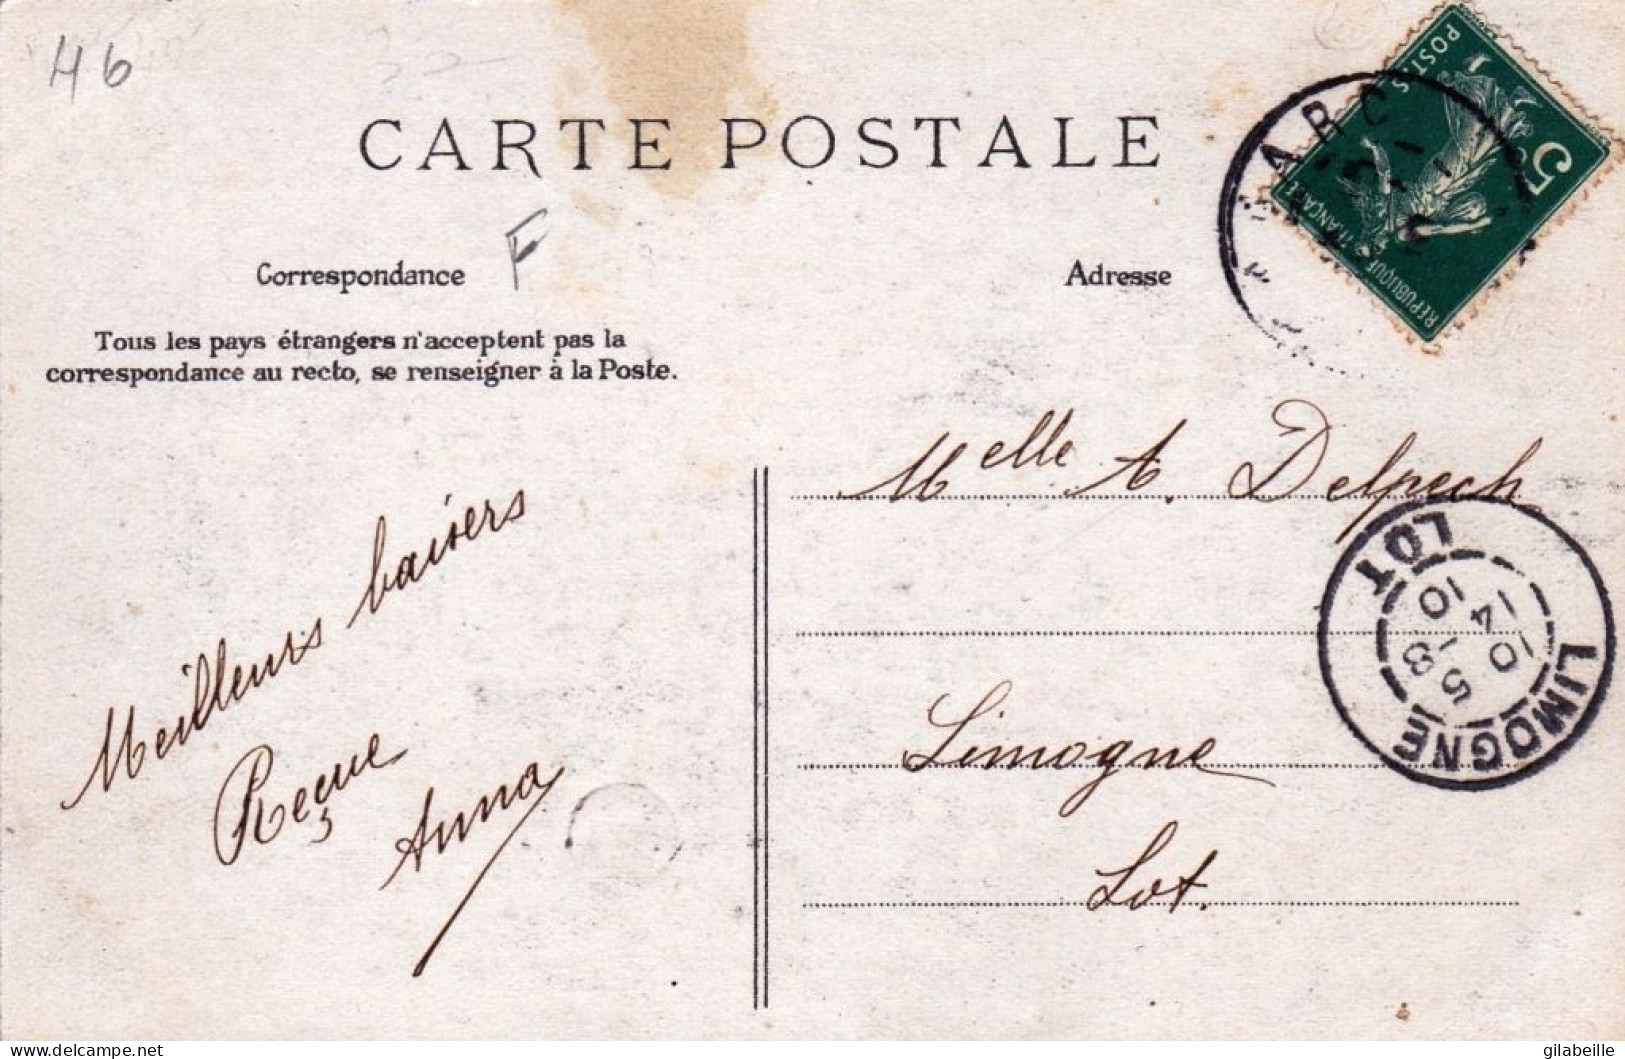 46
CARTE POSTALE
F
Correspondance
Adresse
Tous les pays étrangers n'acceptent pas la
correspondance au recto, se renseigner à la Poste.
POSTES
5c
REPUBLIQUE FRANÇAISE
Melle A. Delpech
Limogne
Lot.
LIMOGNE
LOT
10 14
5 -8
10
Meilleurs baisers
Reçue
Anna
www.delcampe.net
gilabeille